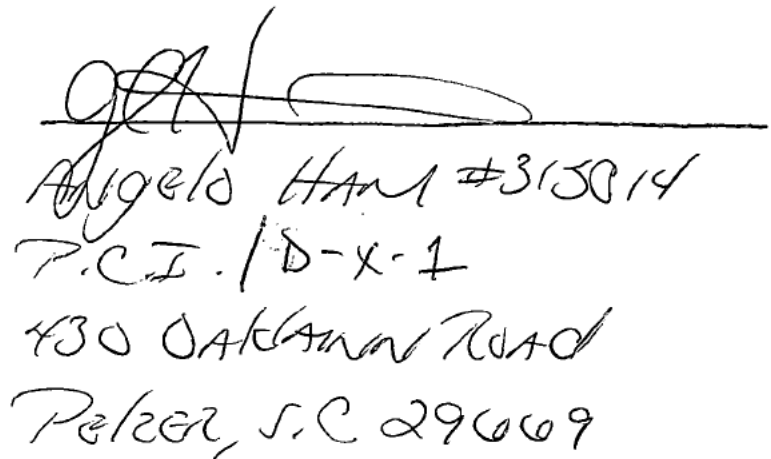 Angelo Ham #315014
P.C.I. / D-X-1
430 Oaklawn Road
Pelzer, S.C 29669